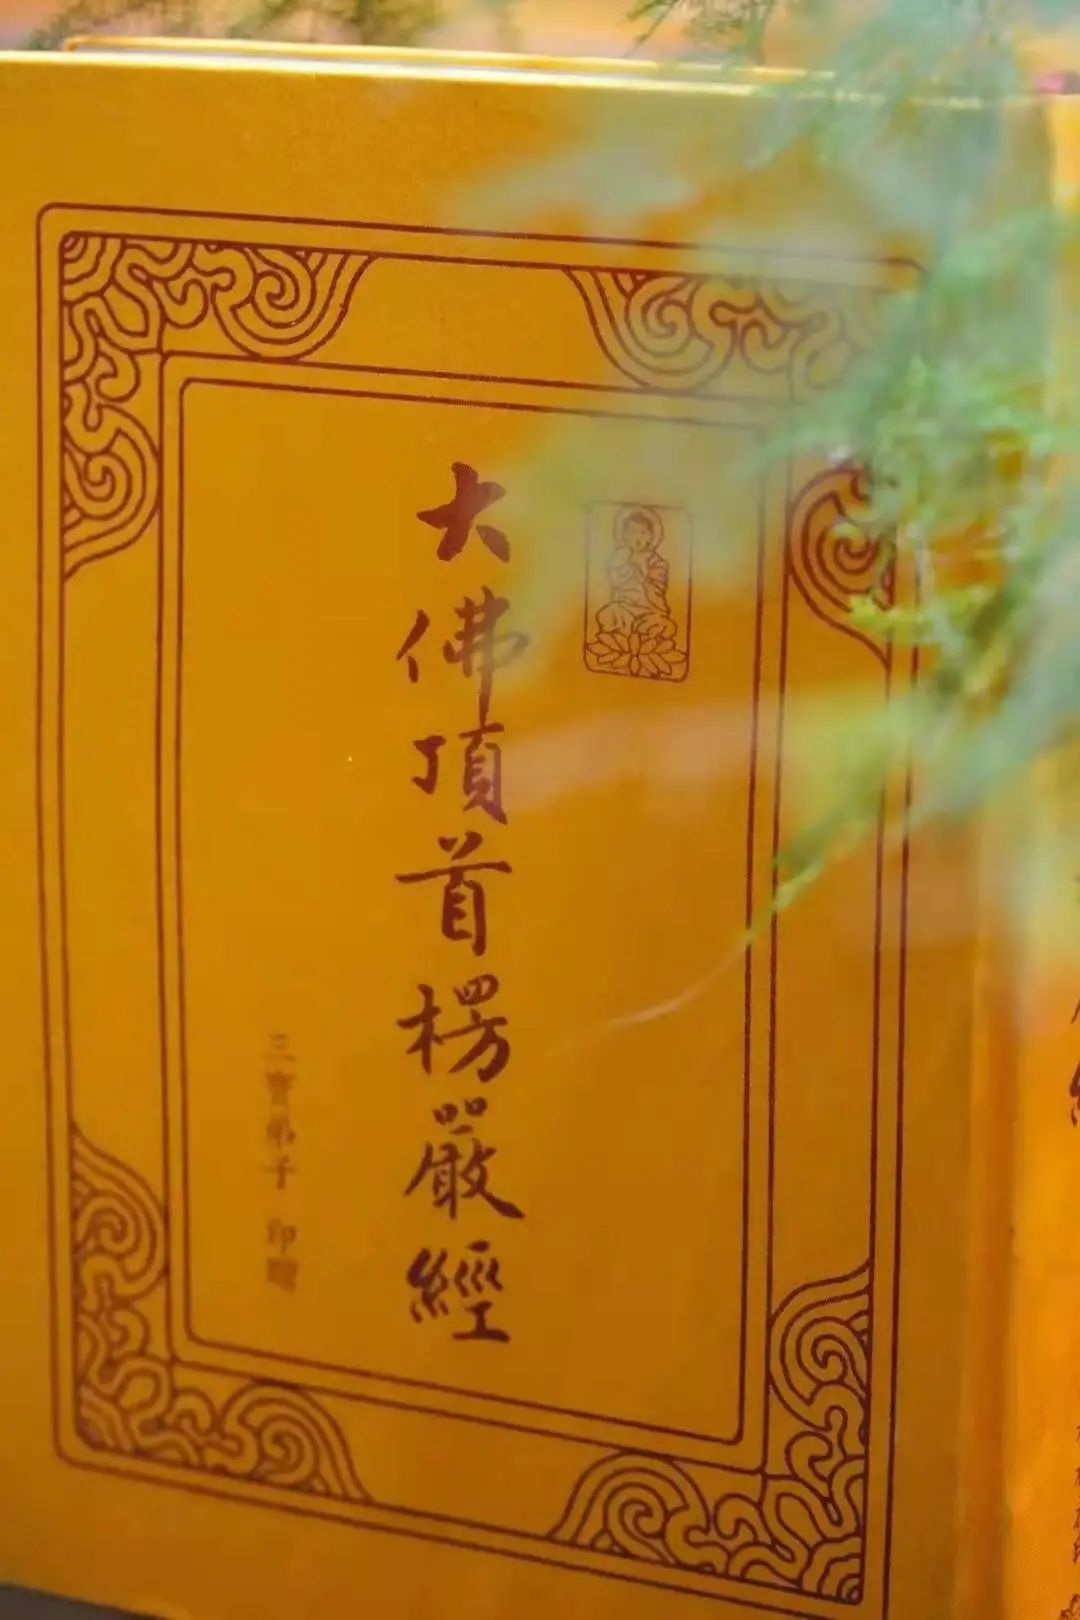 大佛頂首楞嚴經
三寶弟子 印贈